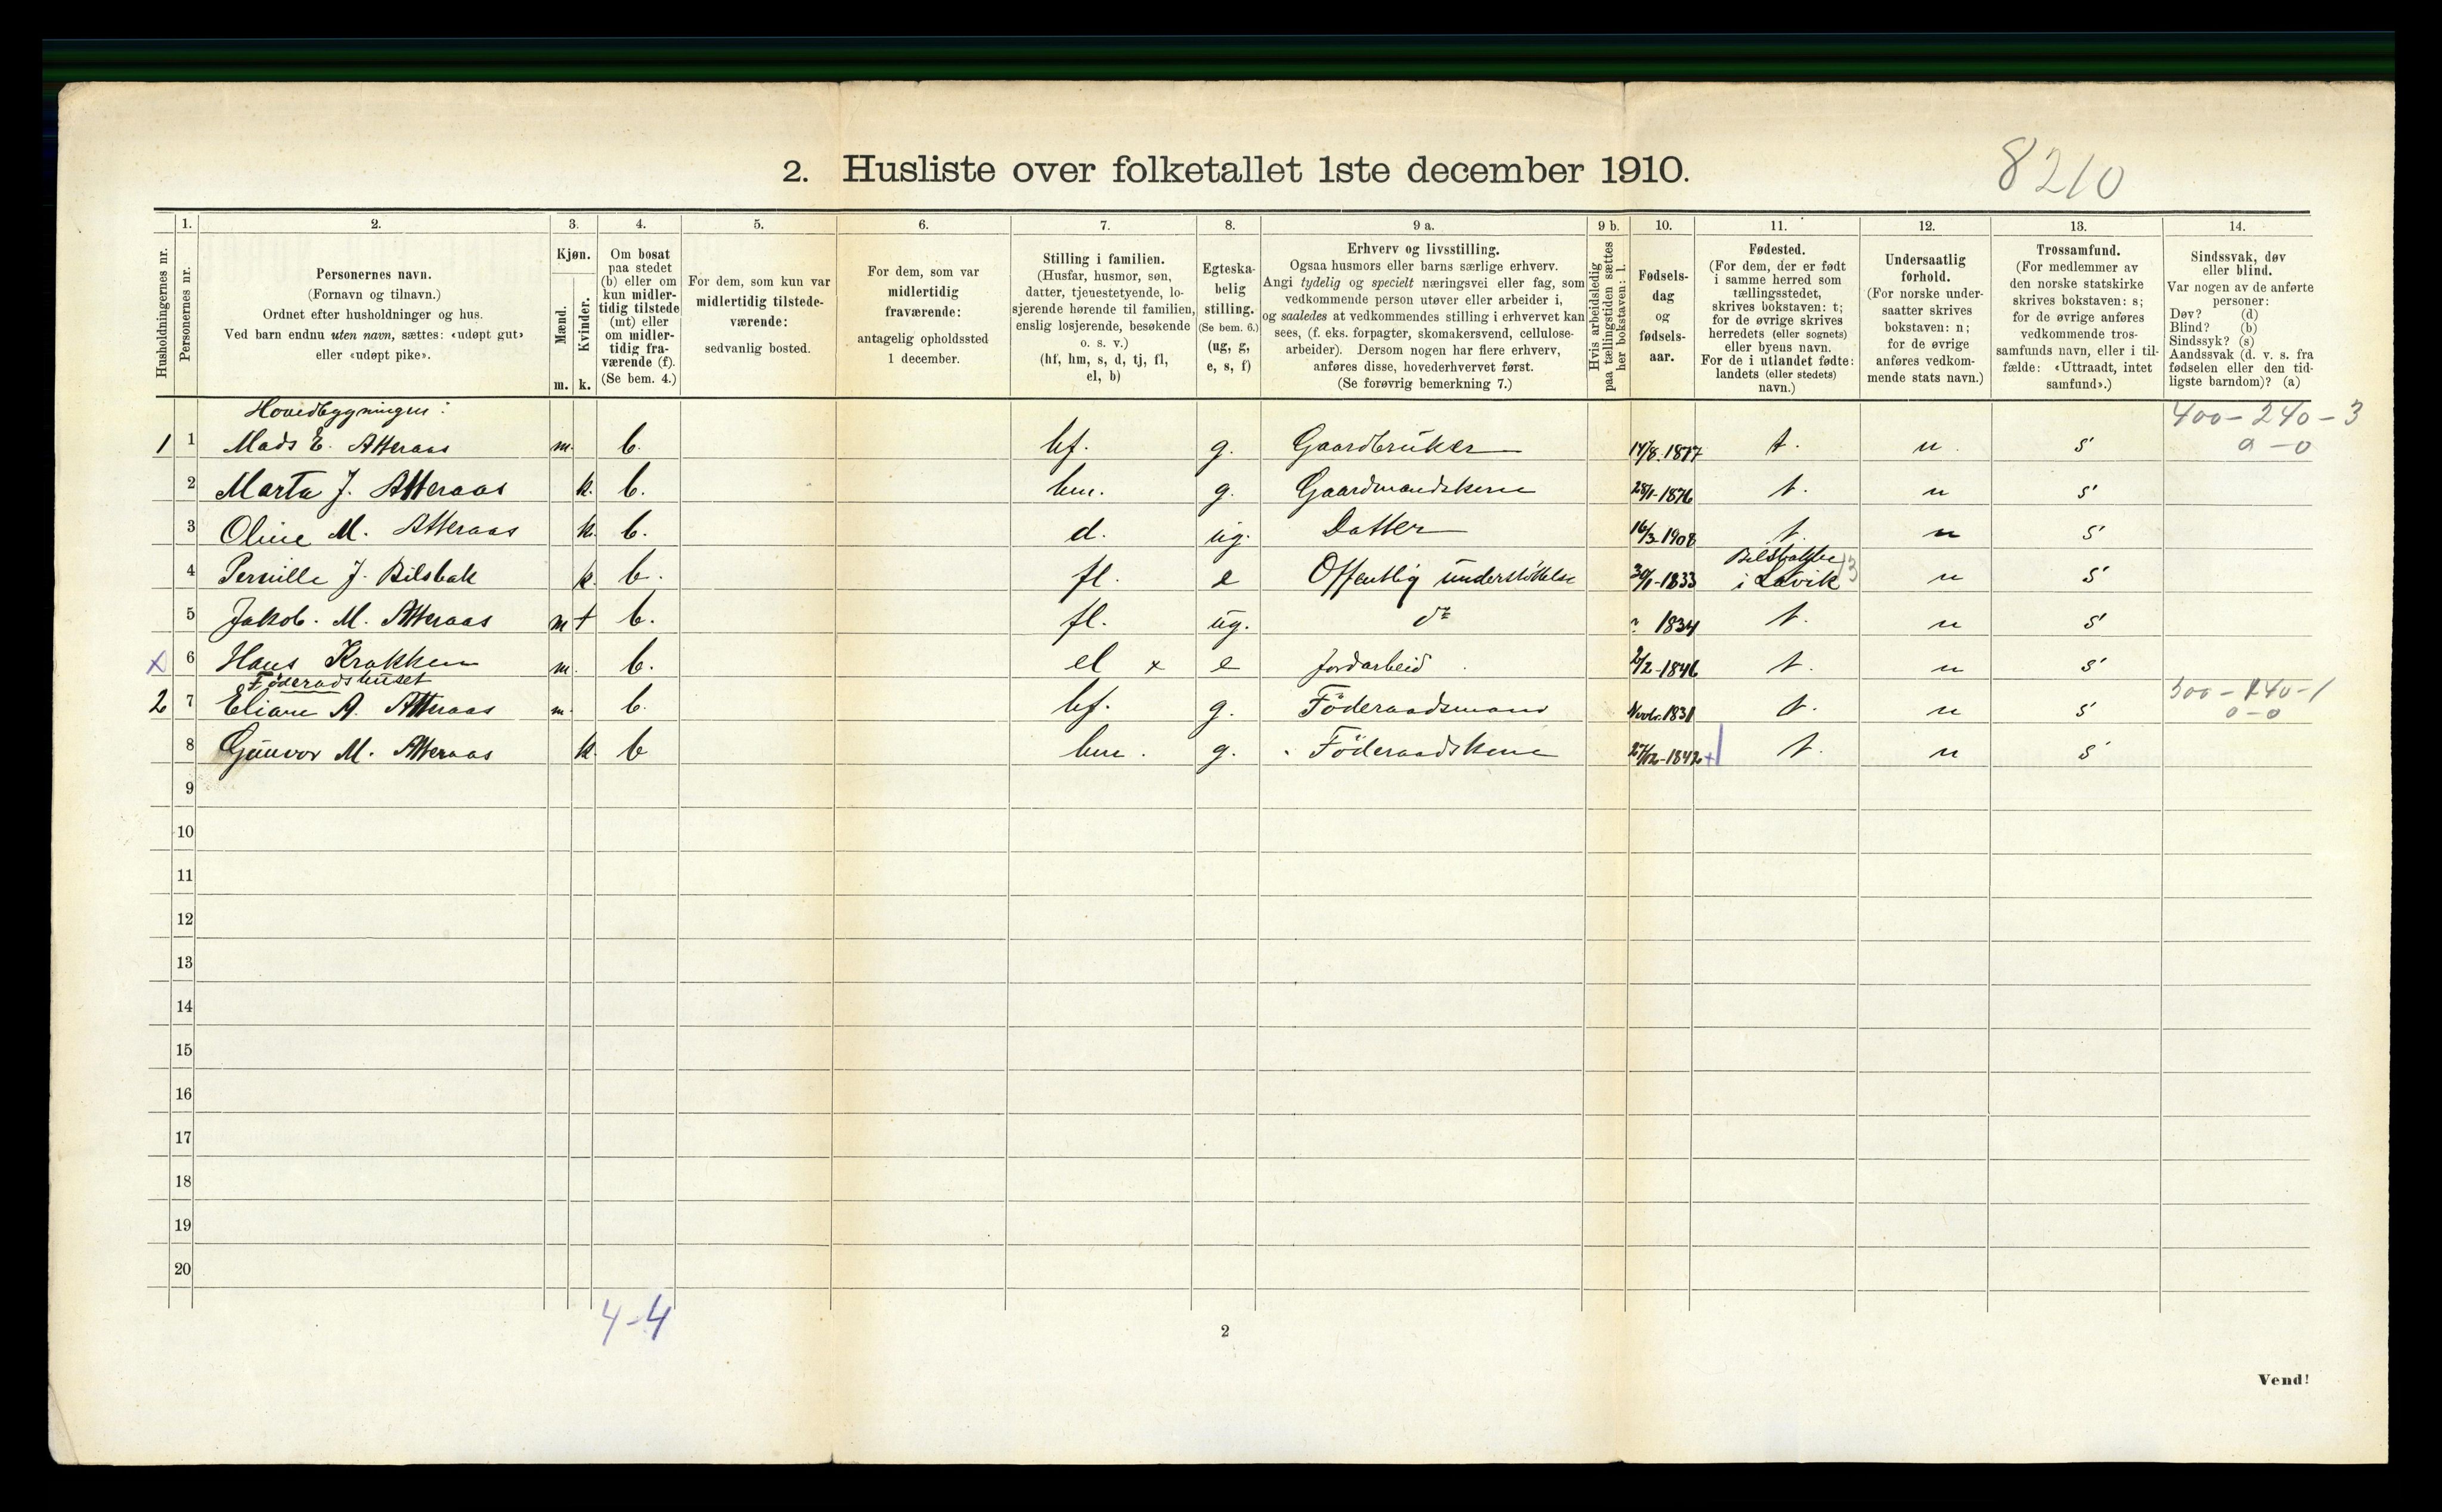 2. Husliste over folketallet 1ste december 1910.
8210
Husholdningernes nr.
1.
Personernes nr.
2.
Personernes navn.
(Fornavn og tilnavn.)
Ordnet efter husholdninger og hus.
Ved barn endnu uten navn, sættes: «udøpt gut»
eller «udøpt pike».
3.
Kjøn.
Mænd.
Kvinder.
m. k.
4.
Om bosat
paa stedet
(b) eller om
kun midler-
tidig tilstede
(mt) eller
om midler-
tidig fra-
værende (f).
(Se bem. 4.)
5.
For dem, som kun var
midlertidig tilstede-
værende:
sedvanlig bosted.
6.
For dem, som var
midlertidig
fraværende:
antagelig opholdssted
1 december.
7.
Stilling i familien.
(Husfar, husmor, søn,
datter, tjenestetyende, lo-
sjerende hørende til familien,
enslig losjerende, besøkende
o. s. v.)
(hf, hm, s, d, tj, fl,
el, b)
8.
Egteska-
belig
stilling.
(Se bem. 6.)
(ug, g,
e, s, f)
9 a.
Erhverv og livsstilling.
Ogsaa husmors eller barns særlige erhverv.
Angi tydelig og specielt næringsvei eller fag, som
vedkommende person utøver eller arbeider i,
og saaledes at vedkommendes stilling i erhvervet kan
sees, (f. eks. forpagter, skomakersvend, cellulose-
arbeider). Dersom nogen har flere erhverv,
anføres disse, hovederhvervet først.
(Se forøvrig bemerkning 7.)
9 b.
Hvis arbeidsledig
paa tællingstiden sættes
her bokstaven: l.
10.
Fødsels-
dag
og
fødsels-
aar.
11.
Fødested.
(For dem, der er født
i samme herred som
tællingsstedet,
skrives bokstaven: t;
for de øvrige skrives
herredets (eller sognets)
eller byens navn.
For de i utlandet fødte:
landets (eller stedets)
navn.)
12.
Undersaatlig
forhold.
(For norske under-
saatter skrives
bokstaven: n;
for de øvrige
anføres vedkom-
mende stats navn.)
13.
Trossamfund.
(For medlemmer av
den norske statskirke
skrives bokstaven: s;
for de øvrige anføres
vedkommende tros-
samfunds navn, eller i til-
fælde: «Uttraadt, intet
samfund».)
14.
Sindssvak, døv
eller blind.
Var nogen av de anførte
personer:
Døv? (d)
Blind? (b)
Sindssyk? (s)
Aandssvak (d. v. s. fra
fødselen eller den tid-
ligste barndom)? (a)
Hovedbygningen:
400-240-3
1 1 Mads E. Atteraas m. b. hf. g. Gaardbruker 14/8.1877 t. n. s 0-0
2 Marta J. Atteraas k. b. hm. g. Gaardmandskone 28/1-1876 t. n s
3 Oline M. Atteraas k. b. d. ug. Datter 16/3-1908 t. n s
4 Pernille J. Bilsbak k. b. fl. e Offentlig understöttelse 30/1-1833 i Lavik n s
5 Jakob. M. Atteraas m + b. fl. ug. do ? 1834 t. n s
x 6 Hans Krakken m. b. el x e Jordarbeid 2/2-1846 t. n s
Föderadshuset
2 7 Eliam A. Atteraas m. b. hf. g. Föderaadsmand Novbr. 1831 t. n s 300-140-1
0-0
8 Gunvor M. Atteraas k. b hm. g. Föderaadskone 27/12-1842 + t. n s
9
10
11
12
13
14
15
16
17
18
19
20
4-4
2
Vend!